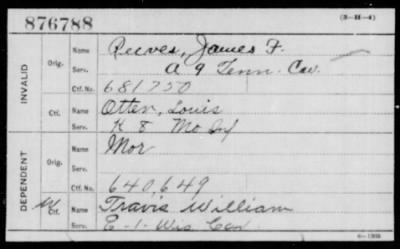 876788
(3-H-4)
INVALID
Orig.
Name Reeves, James F.
Serv. A 9 Tenn. Cav.
Ctf. No. 681750
Ctf.
Name Otten, Louis
Serv. K 8 Mo Inf
DEPENDENT
Orig.
Name Mor
Serv.
Ctf. No. 640,649
W Ctf.
Name Travis William
Serv. E-1-Wis. Cav